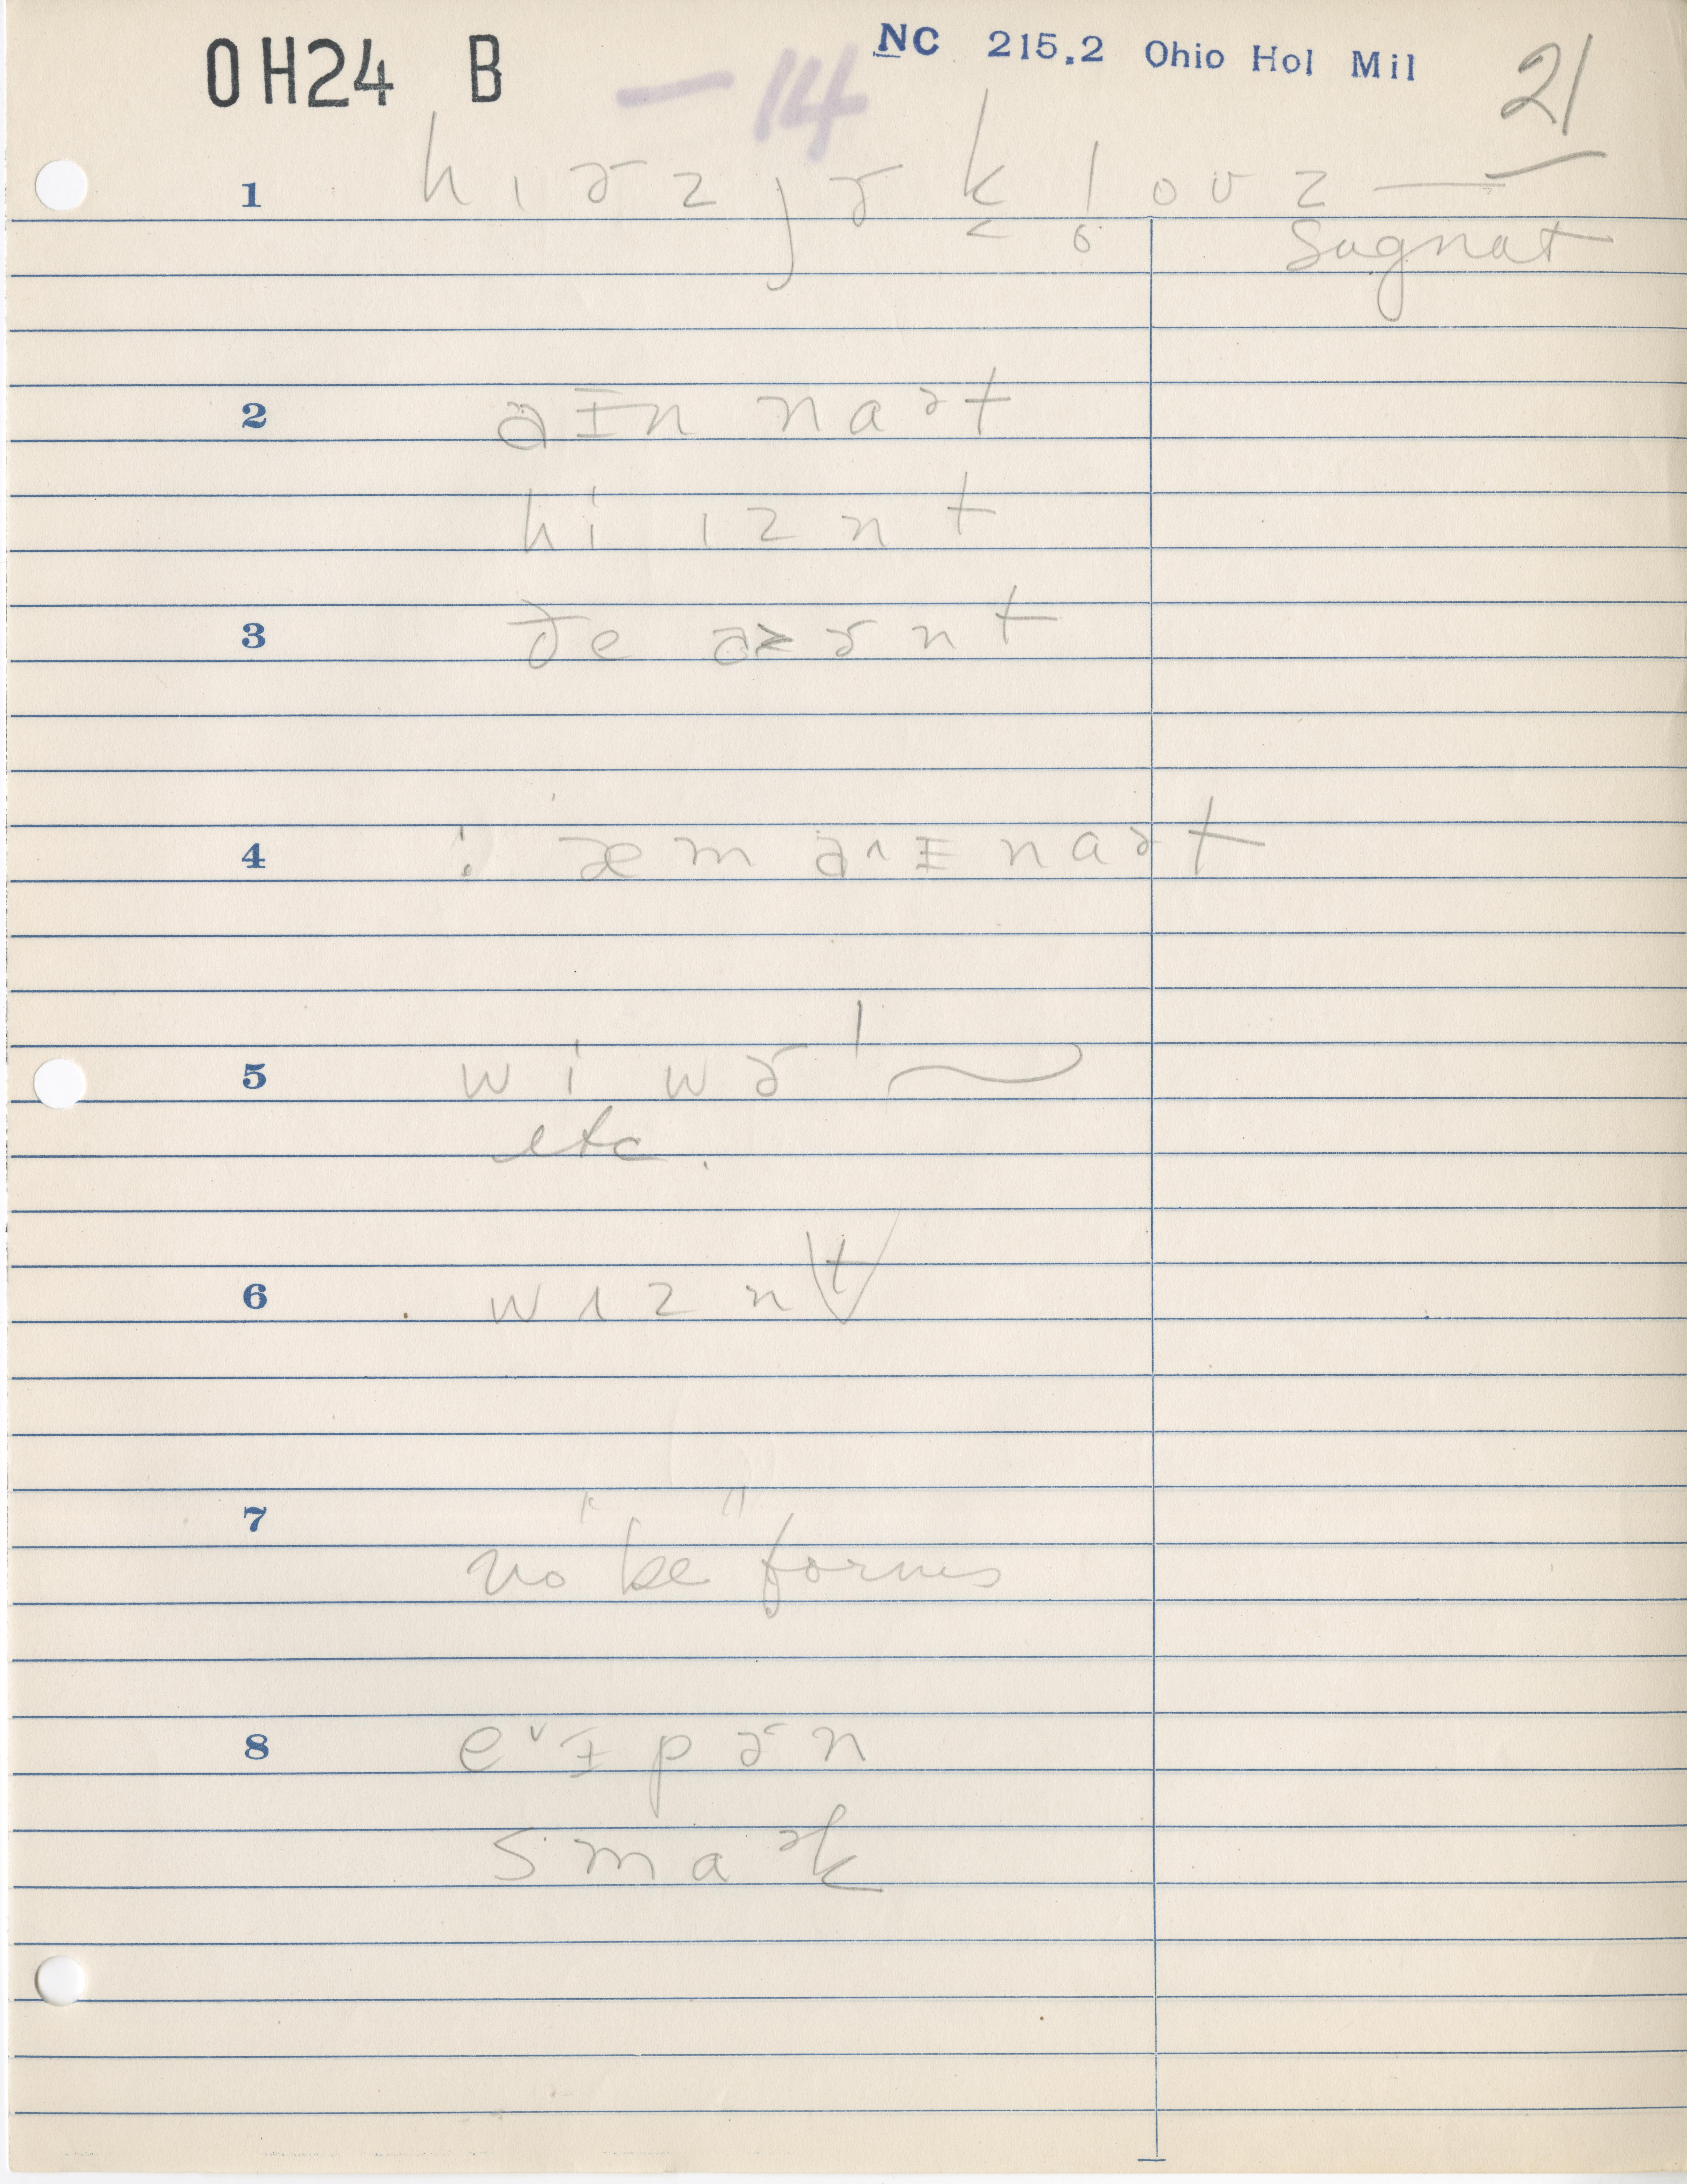 OH24 B — 14 NC 215.2 Ohio Hol Mil 21
1 h ɪ ɚ z j ɚ k̬ l̥ o ʊ z —
Sugnat
2 a ɨ n n a ɚ t
h i ɪ z n t
3 ð e a > ɚ n t
4 : æ m a ^ ɨ n a ɚ t
5 w i w ɚ ˈ ~
etc.
6 w ɪ z n t
7 no "be" forms
8 e ᵛ ɨ p ɚ n
s m a ɚ k